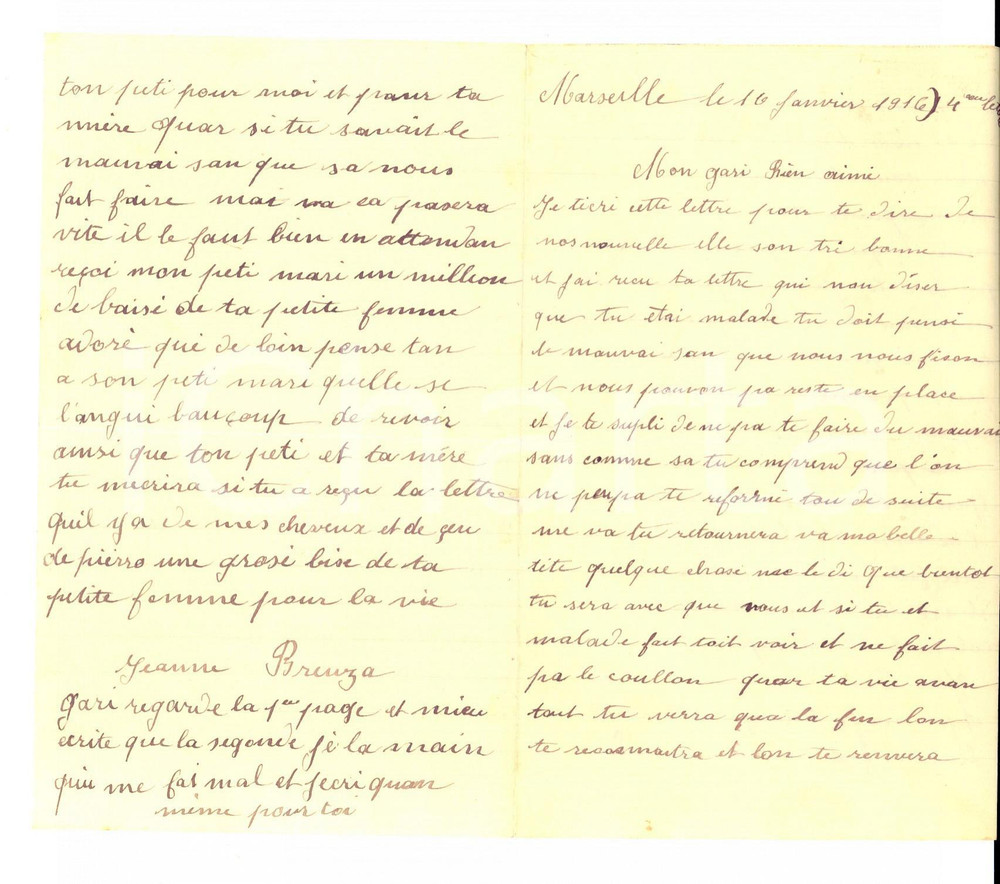 Marseille le 16 Janvier 1916) 4
Mon gari Bien aimé
Je ticri cette lettre pour te dire de
nos nouvelle elle son tré bonne
et jai recu ta lettre qui nou diser
que tu étai malade tu doit pensé
le mauvai san que nous nousféson
et nous pouvon pa reste en place
et je te supli de ne pa te faire du mauvai
sans comme sa tu comprend que l'on
ne peupa te reformé tou de suite
me va tu retournera va ma belle
tite quelque chose me le di que bientot
tu sera avec que nous et si tu et
malade fait toit voir et ne fait
pa le coullon quar ta vie avan
tout tu verra qua la fin lon
te reconnaitra et lon te renvera
ton peti pour moi et pour ta
mère quar si tu savait le
mauvai san que sa nous
fait faire mai va ca pasera
vite il le faut bien en attendan
reçoi mon peti mari un million
de baisé de ta petite femme
adoré qui de loin pense tan
a son peti mari quelle se
l'angui baucoup de revoir
ainsi que ton peti et ta mère
tu mecrira si tu a reçu la lettre
quil y a de mes cheveux et de çeu
de piérro une grosé bise de ta
petite femme pour la vie
Jeanne Brenza
gari regarde la 1er page et mieu
ecrite que la segonde jè la main
qui me fai mal et jecri quan
même pour toi